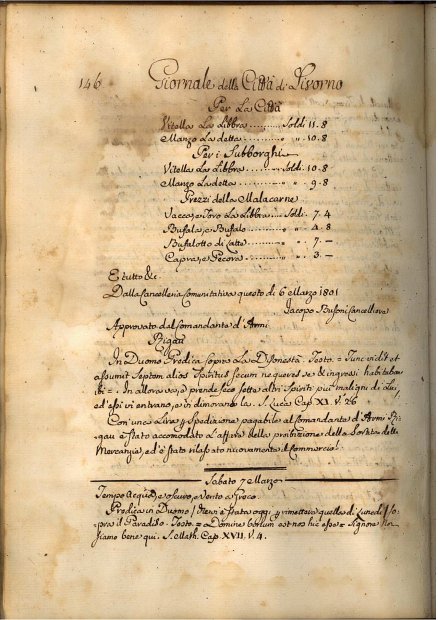 146 Giornale della Città di Livorno
Per La Città
Vitella La Libbra .......... Soldi 11.8
Manzo La detta .......... " " 10.8
Per i Subborghi
Vitella La Libbra .......... Soldi 10.8
Manzo La detta .......... " " 9.8
Prezzi della Malacarne
Vacca, e Toro La Libbra .... Soldi 7.4
Bufala, e Bufalo .......... " " 4.8
Bufalotto di Latte .......... " " 7.—
Capra, e Pecora .......... " " 3.—
E tutto &c
Dalla Cancelleria Comunitativa questo di 6 Marzo 1801
Jacopo Cancelliere
Approvato dal Comandante d'Armi
Rigau
In Duomo Predica sopra La Disonestà. Testo = Tunc vadit et
assumit Septem alios Spiritus secum nequiores se & ingressi habitabant
ibi = In allora va, e prende seco sette altri Spiriti più maligni di Lui,
ed essi vi entrano, e in dimorando la. S. Luca Cap XI. V. 26
Con una Lira p Spedizione pagabile al Comandante d'Armi Ri-
gau è stato accomodato l'affare della proibizione della Sortita delle
Mercanzie, ed è stato rilasciato nuovamente il Commercio.
Sabato 7 Marzo
Tempo Acqua, e oscuro, e vento a Siroco.
Predica in Duomo / è stata oggi p rimettere quella di Lunedì / So-
pra il Paradiso. Testo = Domine bonum est nos hic esse = Signore noi
siamo bene qui. S. Matth. Cap. XVII. V. 4.